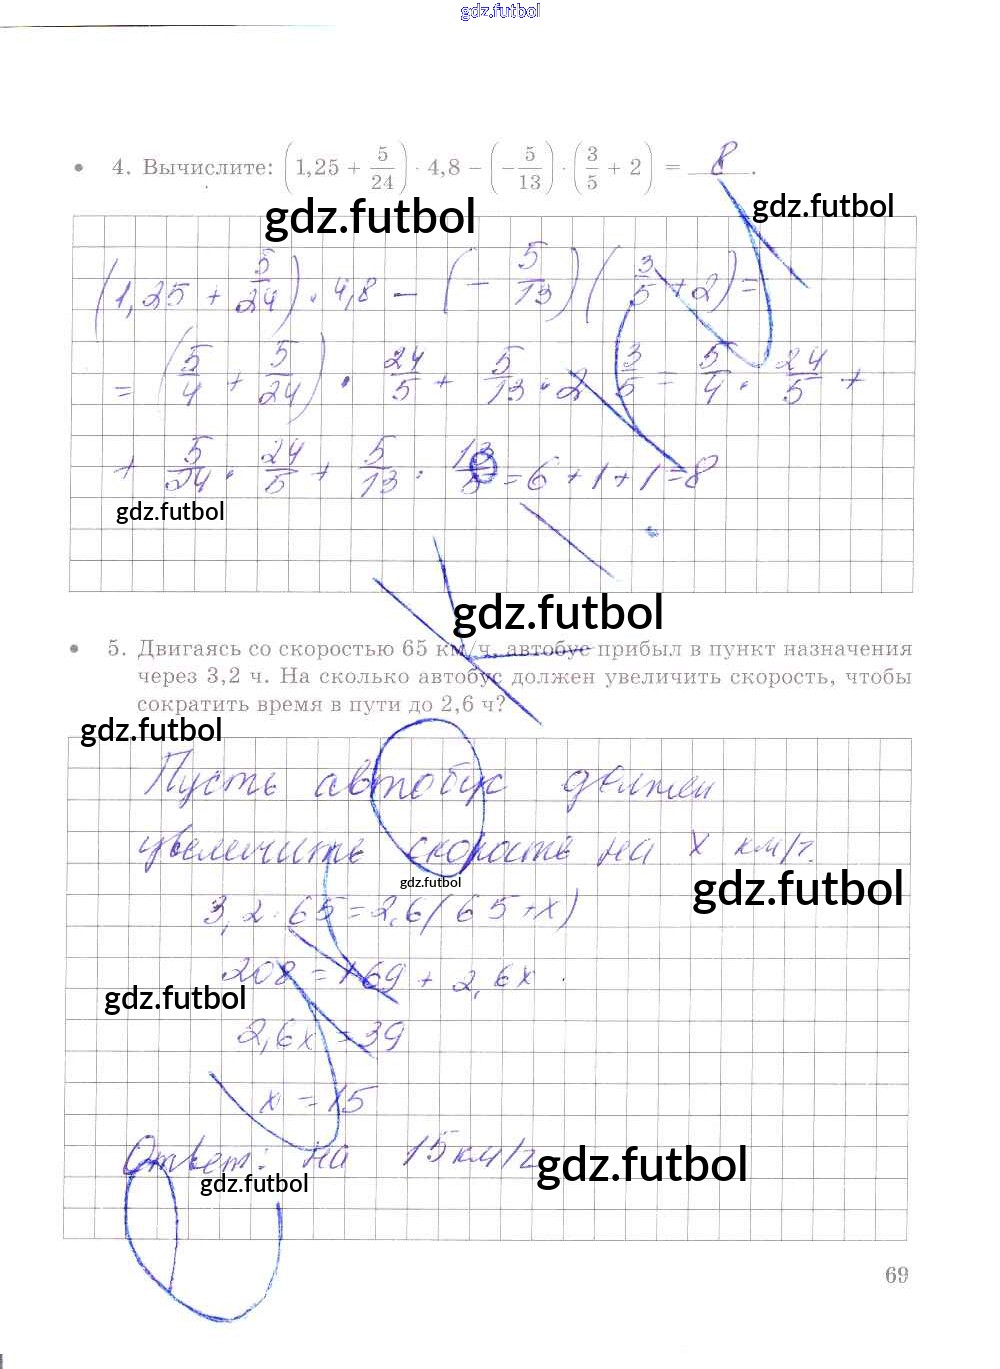 gdz.futbol
• 4. Вычислите: (1,25 + 5/24) · 4,8 − (−5/13) · (3/5 + 2) = 8.
gdz.futbol
gdz.futbol
(1,25 + 5/24) · 4,8 − (−5/13)(3/5 + 2) =
= (5/4 + 5/24) · 24/5 + 5/13 · 2 3/5 = 5/4 · 24/5 +
+ 5/24 · 24/5 + 5/13 · 13/5 = 6 + 1 + 1 = 8
gdz.futbol
gdz.futbol
• 5. Двигаясь со скоростью 65 км/ч, автобус прибыл в пункт назначения
через 3,2 ч. На сколько автобус должен увеличить скорость, чтобы
сократить время в пути до 2,6 ч?
gdz.futbol
Пусть автобус должен
увеличить скорость на x км/ч.
gdz.futbol
gdz.futbol
3,2 · 65 = 2,6(65 + x)
208 = 169 + 2,6x
gdz.futbol
2,6x = 39
x = 15
Ответ: на 15 км/ч
gdz.futbol
gdz.futbol
69